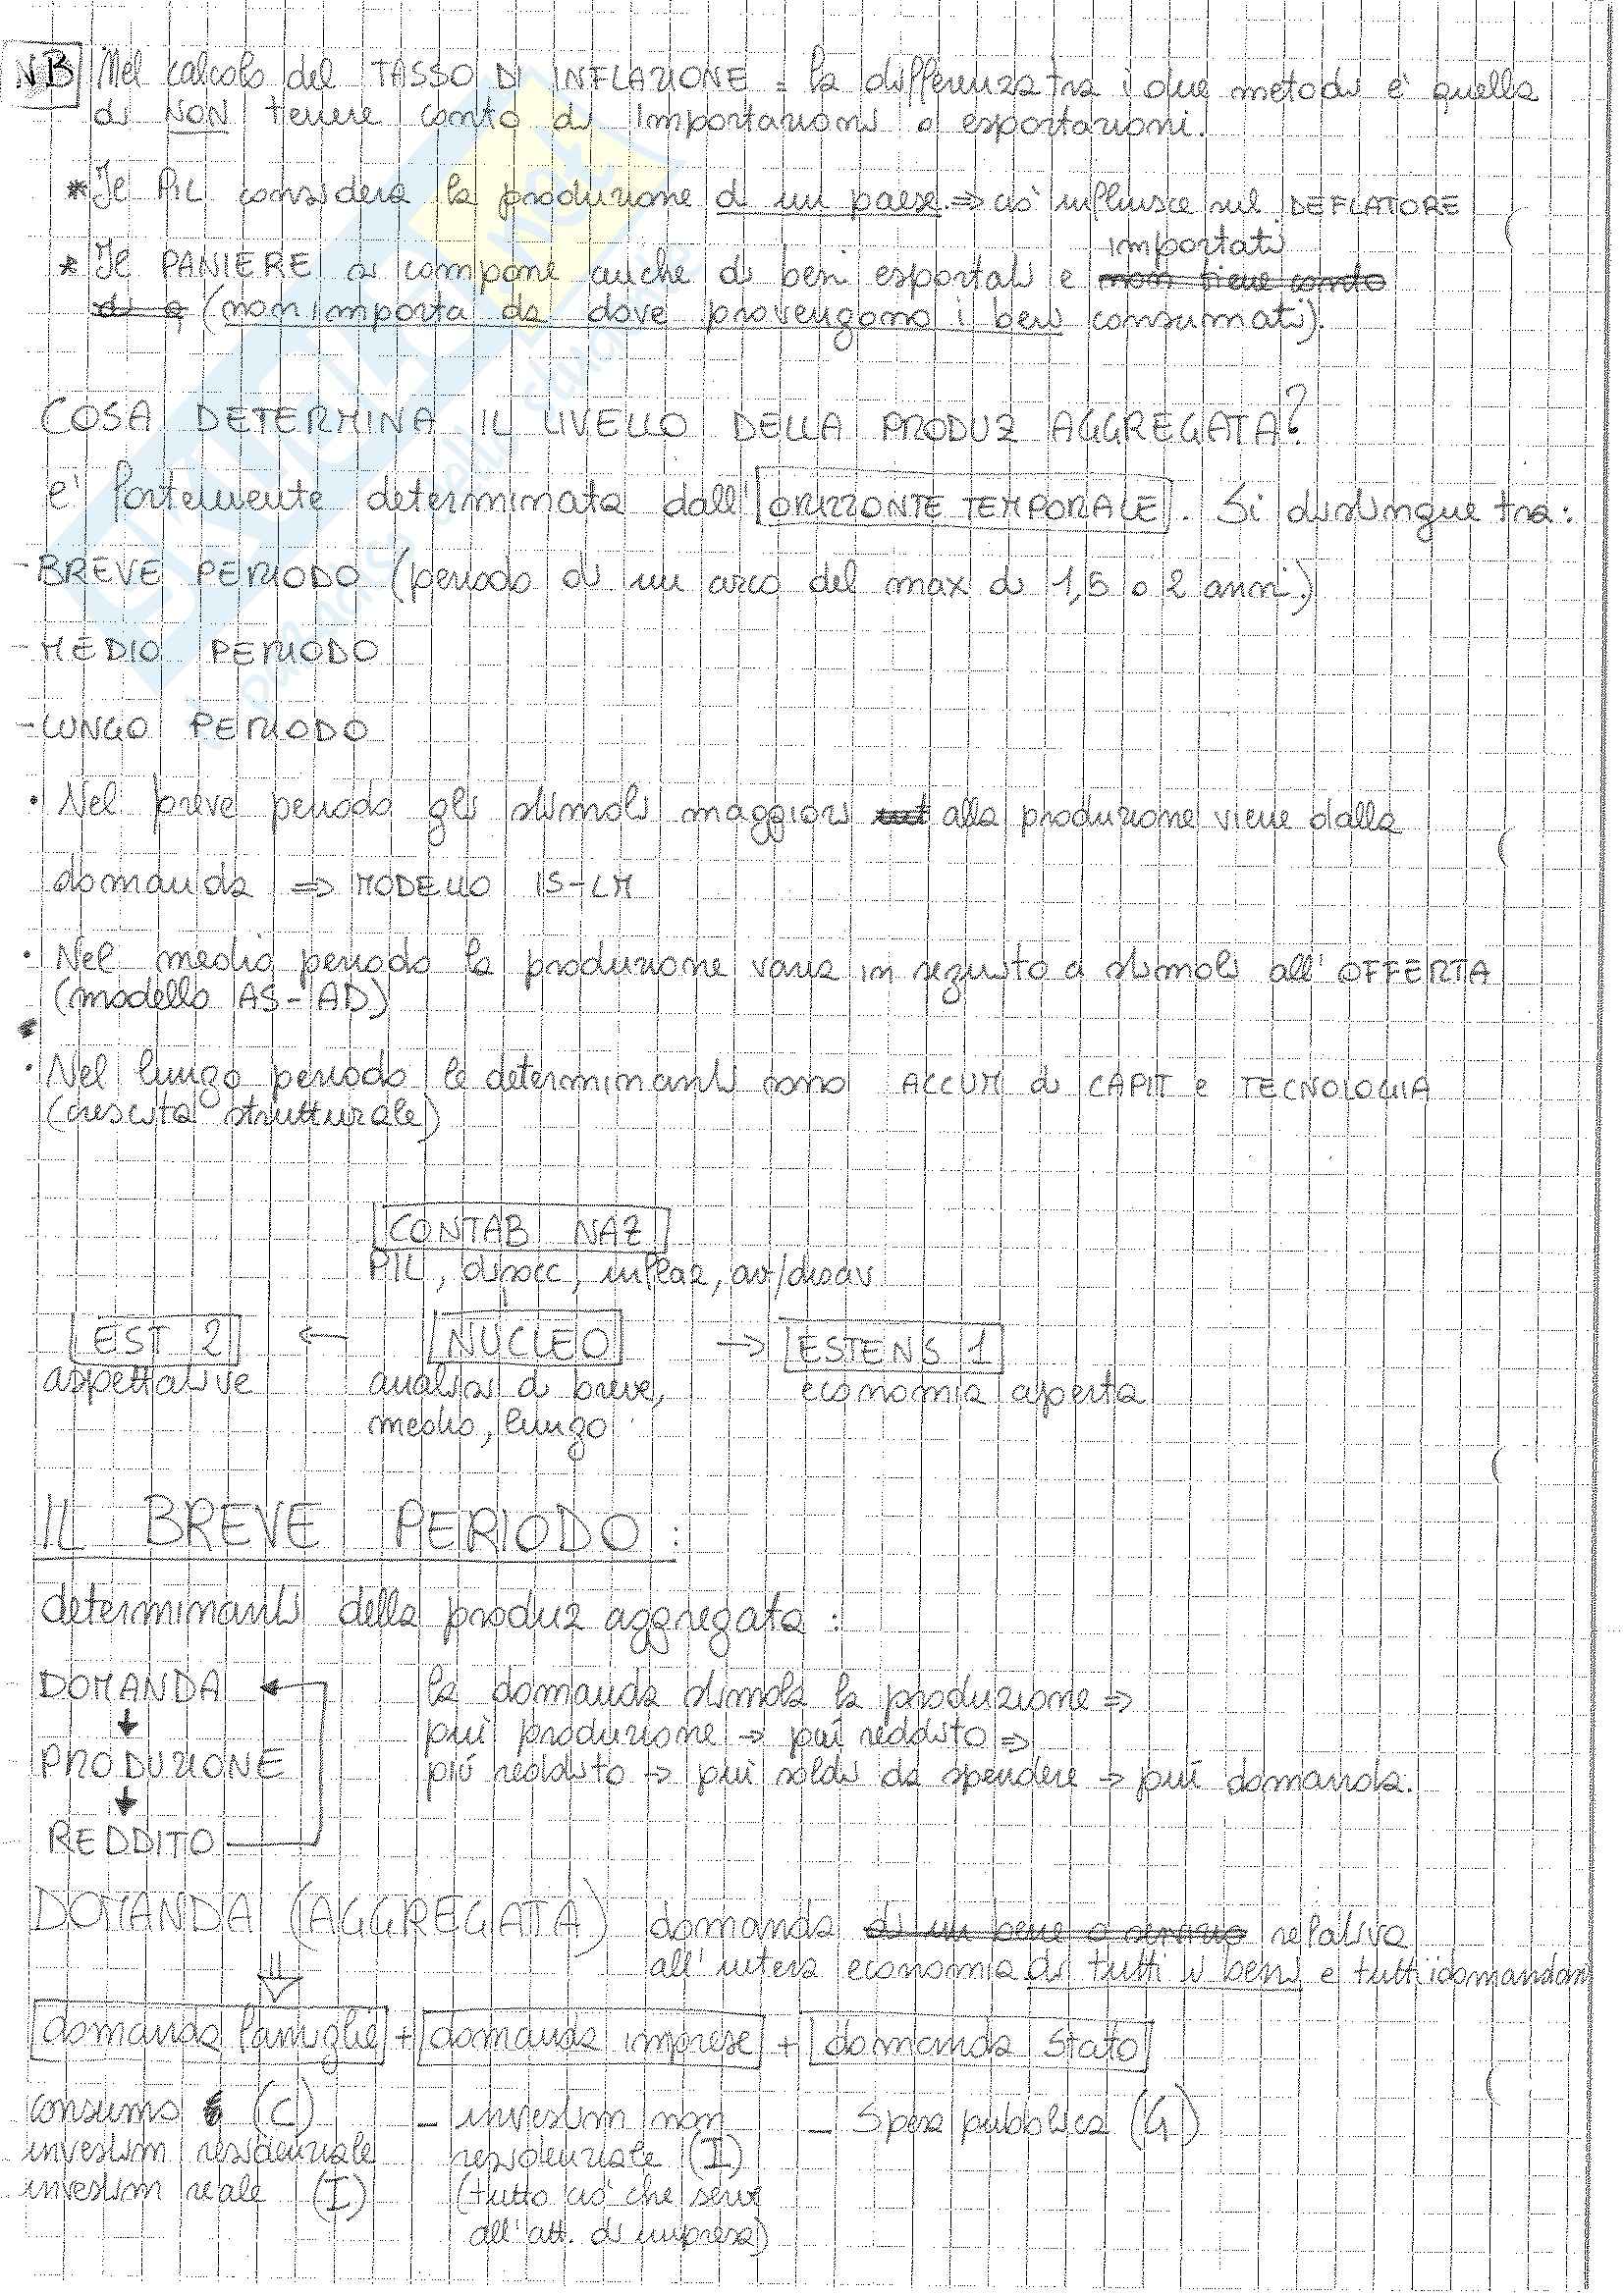 NB Nel calcolo del TASSO DI INFLAZIONE = la differenza tra i due metodi è quella
di NON tenere conto di importazioni o esportazioni.
* Il PIL considera la produzione di un paese => ciò influisce sul DEFLATORE
importati
* Il PANIERE si compone anche di beni esportati e non tiene conto
di q (non importa da dove provengono i beni consumati).
COSA DETERMINA IL LIVELLO DELLA PRODUZ AGGREGATA?
e' fortemente determinata dall' ORIZZONTE TEMPORALE. Si distingue tra:
- BREVE PERIODO (periodo di un arco del max di 1,5 o 2 anni.)
- MEDIO PERIODO
- LUNGO PERIODO
• Nel breve periodo gli stimoli maggiori alla produzione viene dalla
domanda => MODELLO IS-LM
• Nel medio periodo la produzione varia in seguito a stimoli all'OFFERTA
(modello AS-AD)
• Nel lungo periodo le determinanti sono ACCUM di CAPIT e TECNOLOGIA
(crescita strutturale)
CONTAB NAZ
PIL, disocc, inflaz, av/disav
EST 2 ← NUCLEO → ESTENS 1
aspettative analisi di breve, economia aperta
medio, lungo
IL BREVE PERIODO:
determinanti della produz aggregata:
DOMANDA la domanda stimola la produzione =>
più produzione → più reddito =>
PRODUZIONE più reddito → più soldi da spendere → più domanda.
REDDITO
DOMANDA (AGGREGATA) domanda di un bene o servizio relativa
all'intera economia di tutti i beni e tutti i domandanti
domanda famiglie + domanda imprese + domanda Stato
consumo (C) - investim non - Spesa pubblica (G)
investim residenziale residenziale (I)
investim reale (I) (tutto ciò che serve
all'att. di impresa)